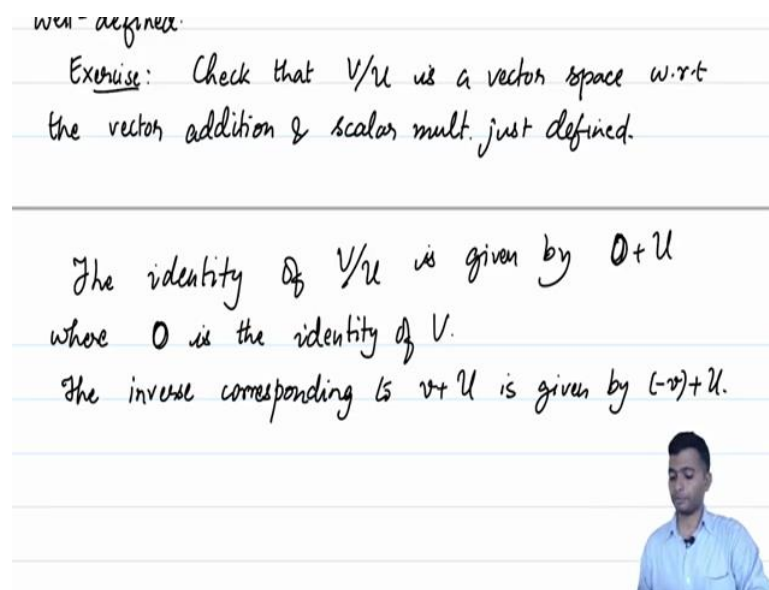 well-defined.
Exercise: Check that V/U is a vector space w.r.t
the vector addition & scalar mult. just defined.
The identity of V/U is given by 0+U
where 0 is the identity of V.
The inverse corresponding to v+U is given by (-v)+U.